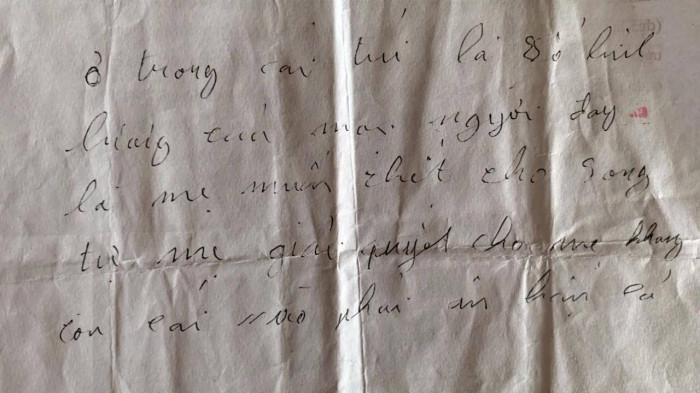 ở trong cái túi là số linh
của mọi người đay
là mẹ muốn chết cho song
tự mẹ giải quyết cho mẹ khong
còn cái nào phải ân hận cả